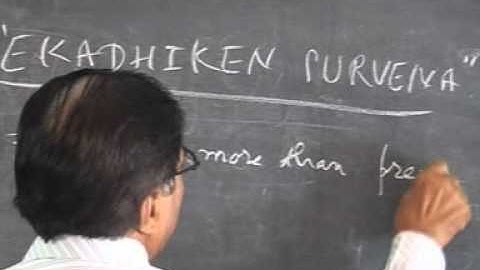 "EKADHIKEN PURVENA"
more than pre